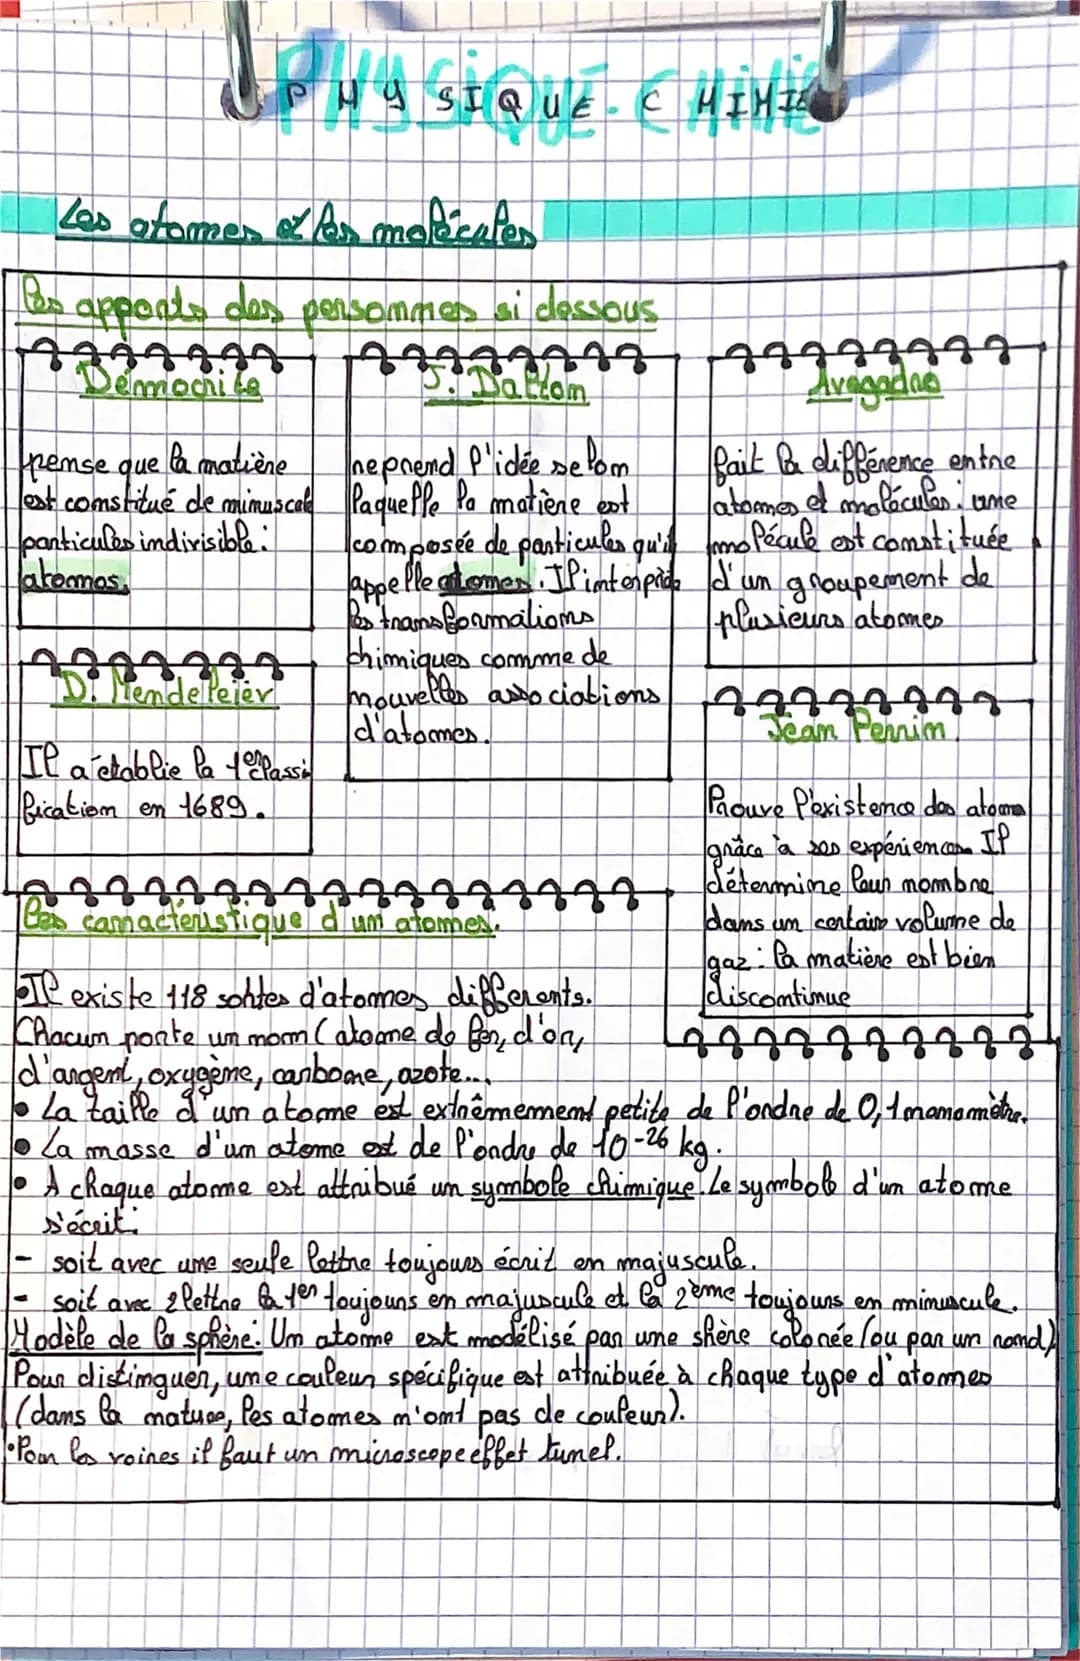 PHYSIQUE-CHIMIE
Les atomes et les molécules
Les apports des personnes si dessous
Démocrite
pense que la matière
est constitué de minuscule
particules indivisible:
atomos.
D. Mendeleïev
Il a établie la 1er classi
fication en 1689.
J. Dalton
reprend l'idée selon
laquelle la matière est
composée de particules qu'il
appelle atomes. Il interprète
les transformations
chimiques comme de
nouvelles associations
d'atomes.
Avogadro
fait la différence entre
atomes et molécules: une
molécule est constituée
d'un groupement de
plusieurs atomes
Jean Perrin
Prouve l'existence des atomes
grâce à ses expériences Il
détermine leur nombre
dans un certain volume de
gaz: la matière est bien
discontinue
Les caractéristique d'un atomes.
•Il existe 118 sortes d'atomes différents.
Chacun porte un nom (atome de fer, d'or,
d'argent, oxygène, carbone, azote...
• La taille d'un atome est extrêmement petite de l'ordre de 0,1 nanomètre.
• La masse d'un atome est de l'ordre de 10-26 kg.
• A chaque atome est attribué un symbole chimique. Le symbole d'un atome
s'écrit:
- soit avec une seule lettre toujours écrit en majuscule.
- soit avec 2 lettre la 1er toujours en majuscule et la 2ème toujours en minuscule.
Modèle de la sphère: Un atome est modélisé par une shère colorée (ou par un rond)
Pour distinguer, une couleur spécifique est attribuée à chaque type d'atomes
(dans la nature, les atomes n'ont pas de couleur).
•Pour les voires il faut un microscope effet tunel.